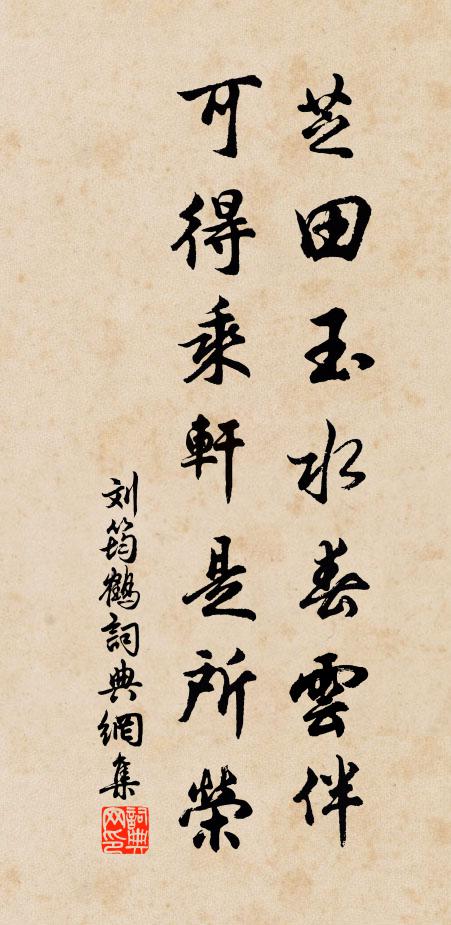 芝田玉水春雲伴
可得乘軒是所榮
刘筠鶴詞典網集
詞典
网印